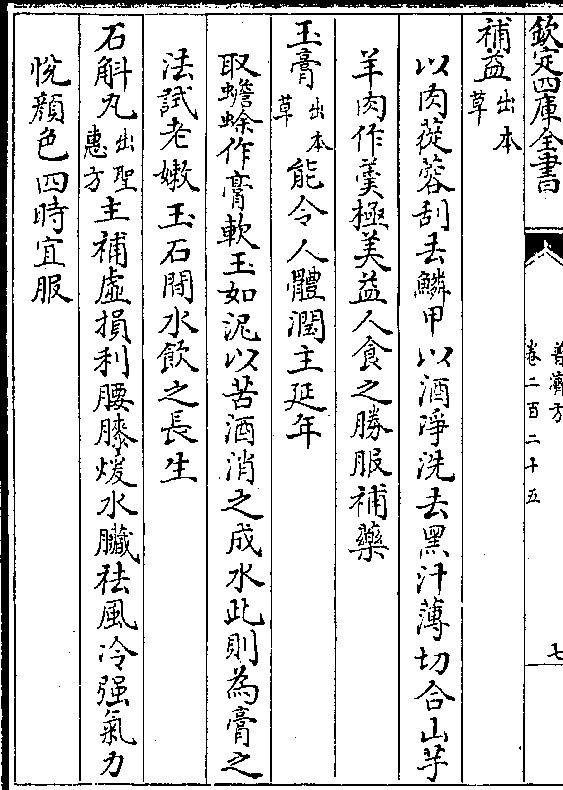 欽定四庫全書
普濟方
卷二百二十五
七
補益出本草
以肉蓯蓉刮去鱗甲以酒淨洗去黑汁薄切合山芋
羊肉作羹極美益人食之勝服補藥
玉膏出本草能令人體潤主延年
取蟾蜍作膏軟玉如泥以苦酒消之成水此則為膏之
法試老嫩玉石間水飲之長生
石斛丸出聖惠方主補虛損利腰膝煖水臟祛風冷强氣力
悅顏色四時宜服